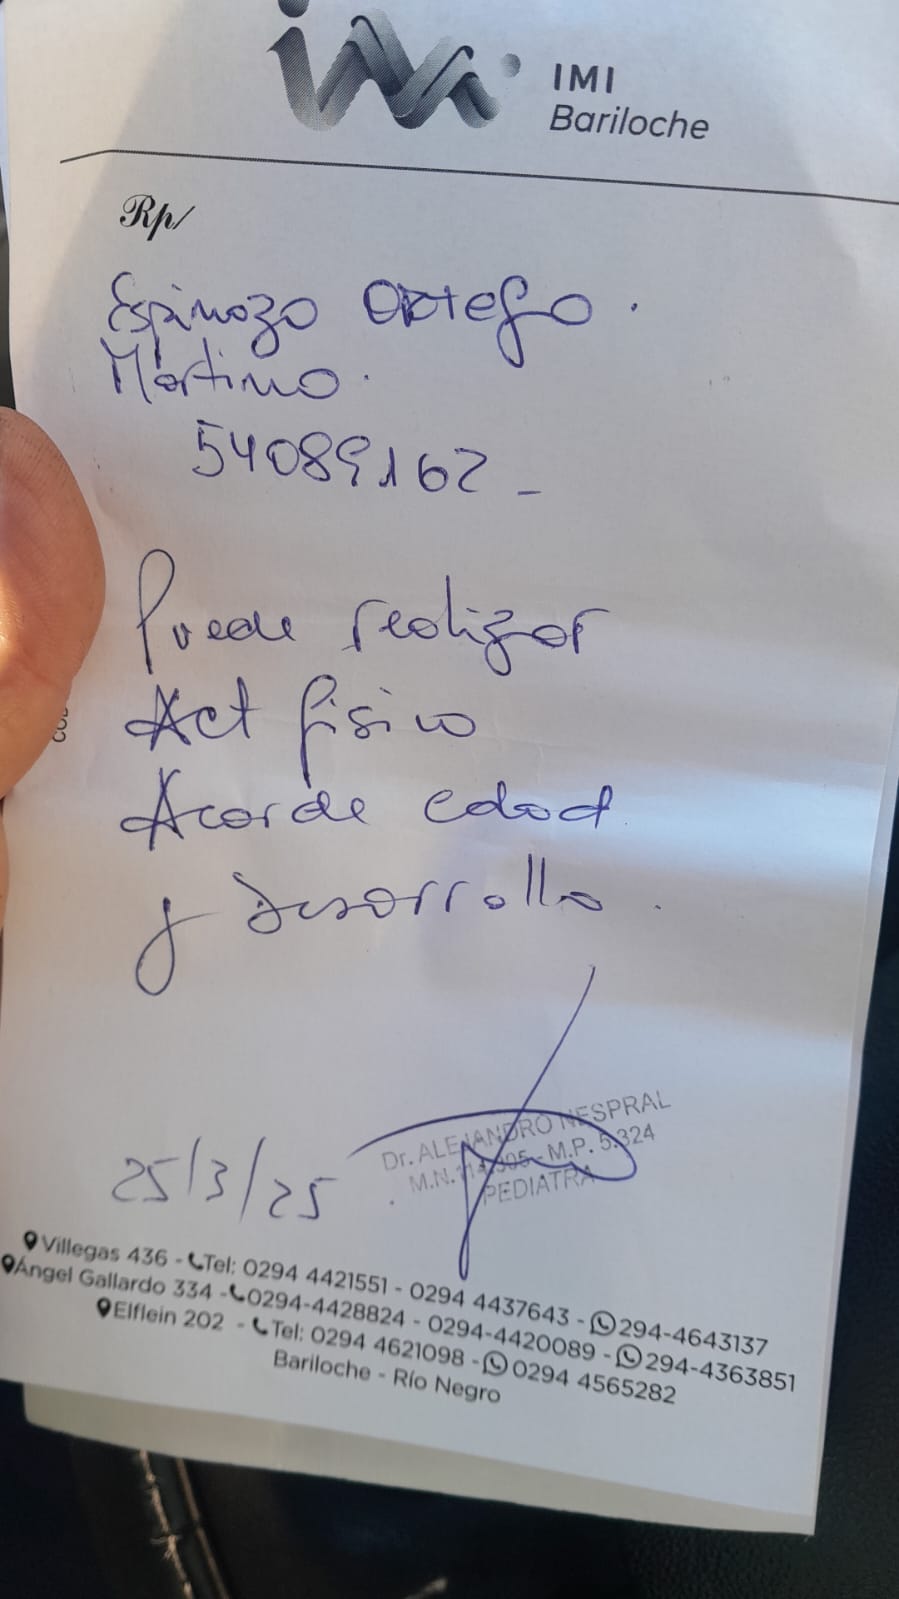 IMI
Bariloche
Rp/
Espinoza Ortega.
Martina.
54089162 -
Puede realizar
Act física
Acorde edad
y desarrollo.
25/3/25
Dr. ALEJANDRO NESPRAL
M.N. 114.305 - M.P. 5.324
PEDIATRA
Villegas 436 - Tel: 0294 4421551 - 0294 4437643 - 294-4643137
Ángel Gallardo 334 - 0294-4428824 - 0294-4420089 - 294-4363851
Elflein 202 - Tel: 0294 4621098 - 0294 4565282
Bariloche - Río Negro